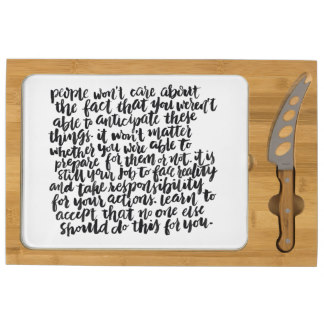 people won't care about
the fact that you weren't
able to anticipate these
things. it won't matter
whether you were able to
prepare for them or not. it is
still your job to face reality
and take responsibility
for your actions. learn to
accept that no one else
should do this for you.